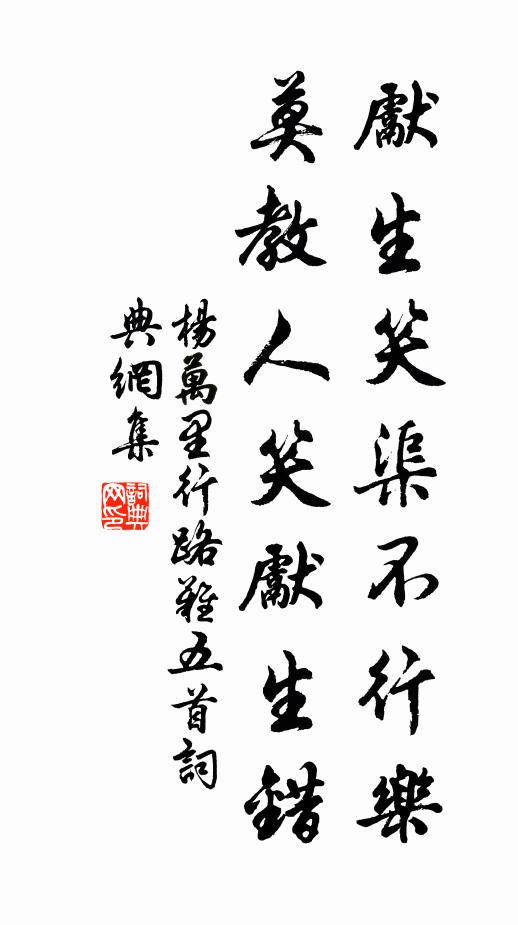 獻生笑渠不行樂
莫教人笑獻生錯
楊萬里行路難五首詞
典網集
詞典
网印